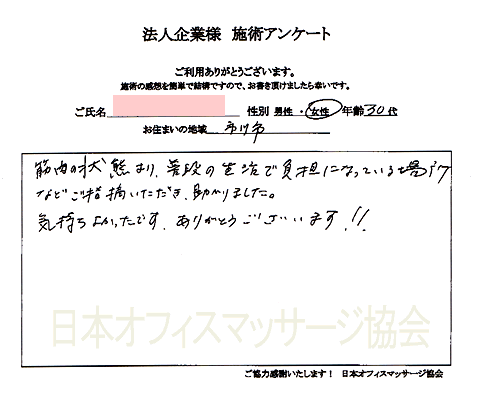 法人企業様 施術アンケート
ご利用ありがとうございます。
施術の感想を簡単で結構ですので、お書き頂けましたら幸いです。
ご氏名 性別 男性 ・ 女性 年齢 30 代
お住まいの地域 市川市
筋肉の状態より、普段の生活で負担になっている場所
などご指摘いただき、助かりました。
気持ちよかったです。ありがとうございます!!
日本オフィスマッサージ協会
ご協力感謝いたします! 日本オフィスマッサージ協会